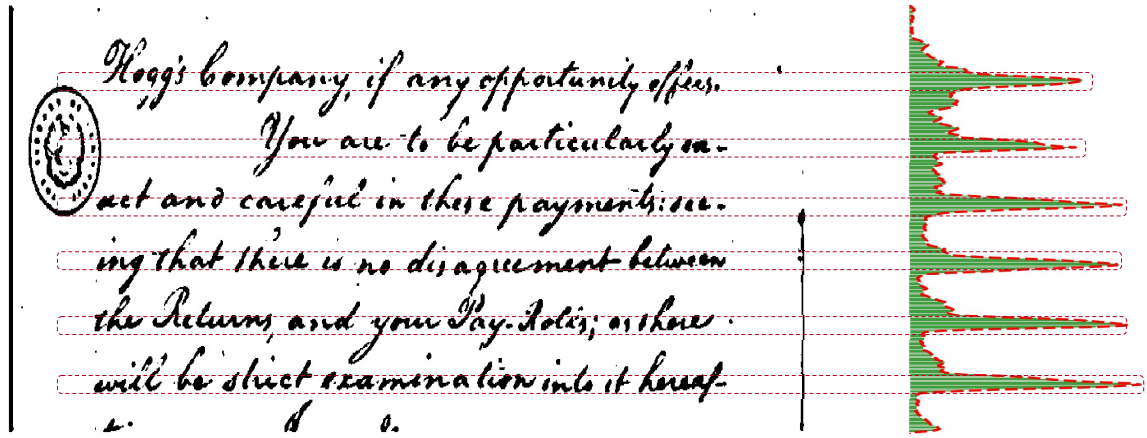 Hogg's Company, if any opportunity offers.
You are to be particularly ex-
act and careful in these payments: see-
ing that there is no disagreement between
the Returns, and your Pay-Rolls; as there
will be strict examination into it hereaf-